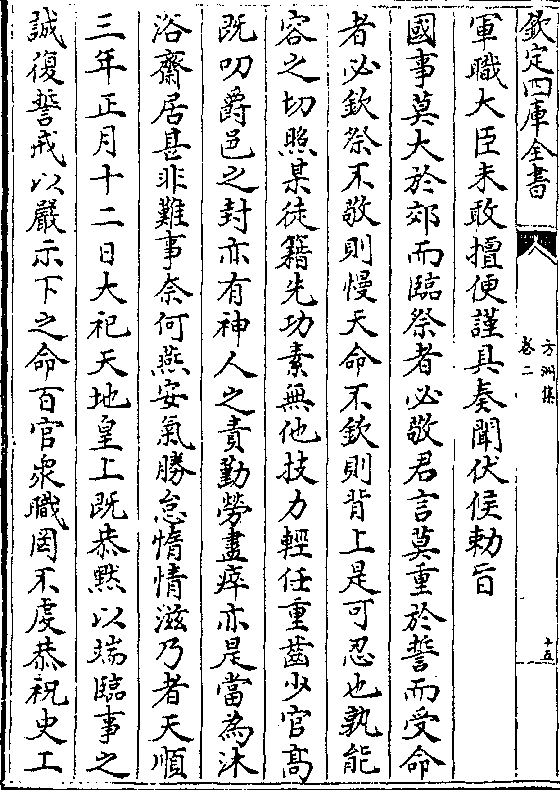 欽定四庫全書
方洲集
卷二
十五
軍職大臣未敢擅便謹具奏聞伏候勅旨
國事莫大於郊而臨祭者必敬君言莫重於誓而受命
者必欽祭不敬則慢天命不欽則背上是可忍也孰能
容之切照某徒籍先功素無他技力輕任重齒少官髙
既叨爵邑之封亦有神人之責勤勞盡瘁亦是當為沐
浴齋居甚非難事奈何燕安氣勝怠惰情滋乃者天順
三年正月十二日大祀天地皇上既恭黙以端臨事之
誠復誓戒以嚴示下之命百官衆職罔不虔恭祝史工